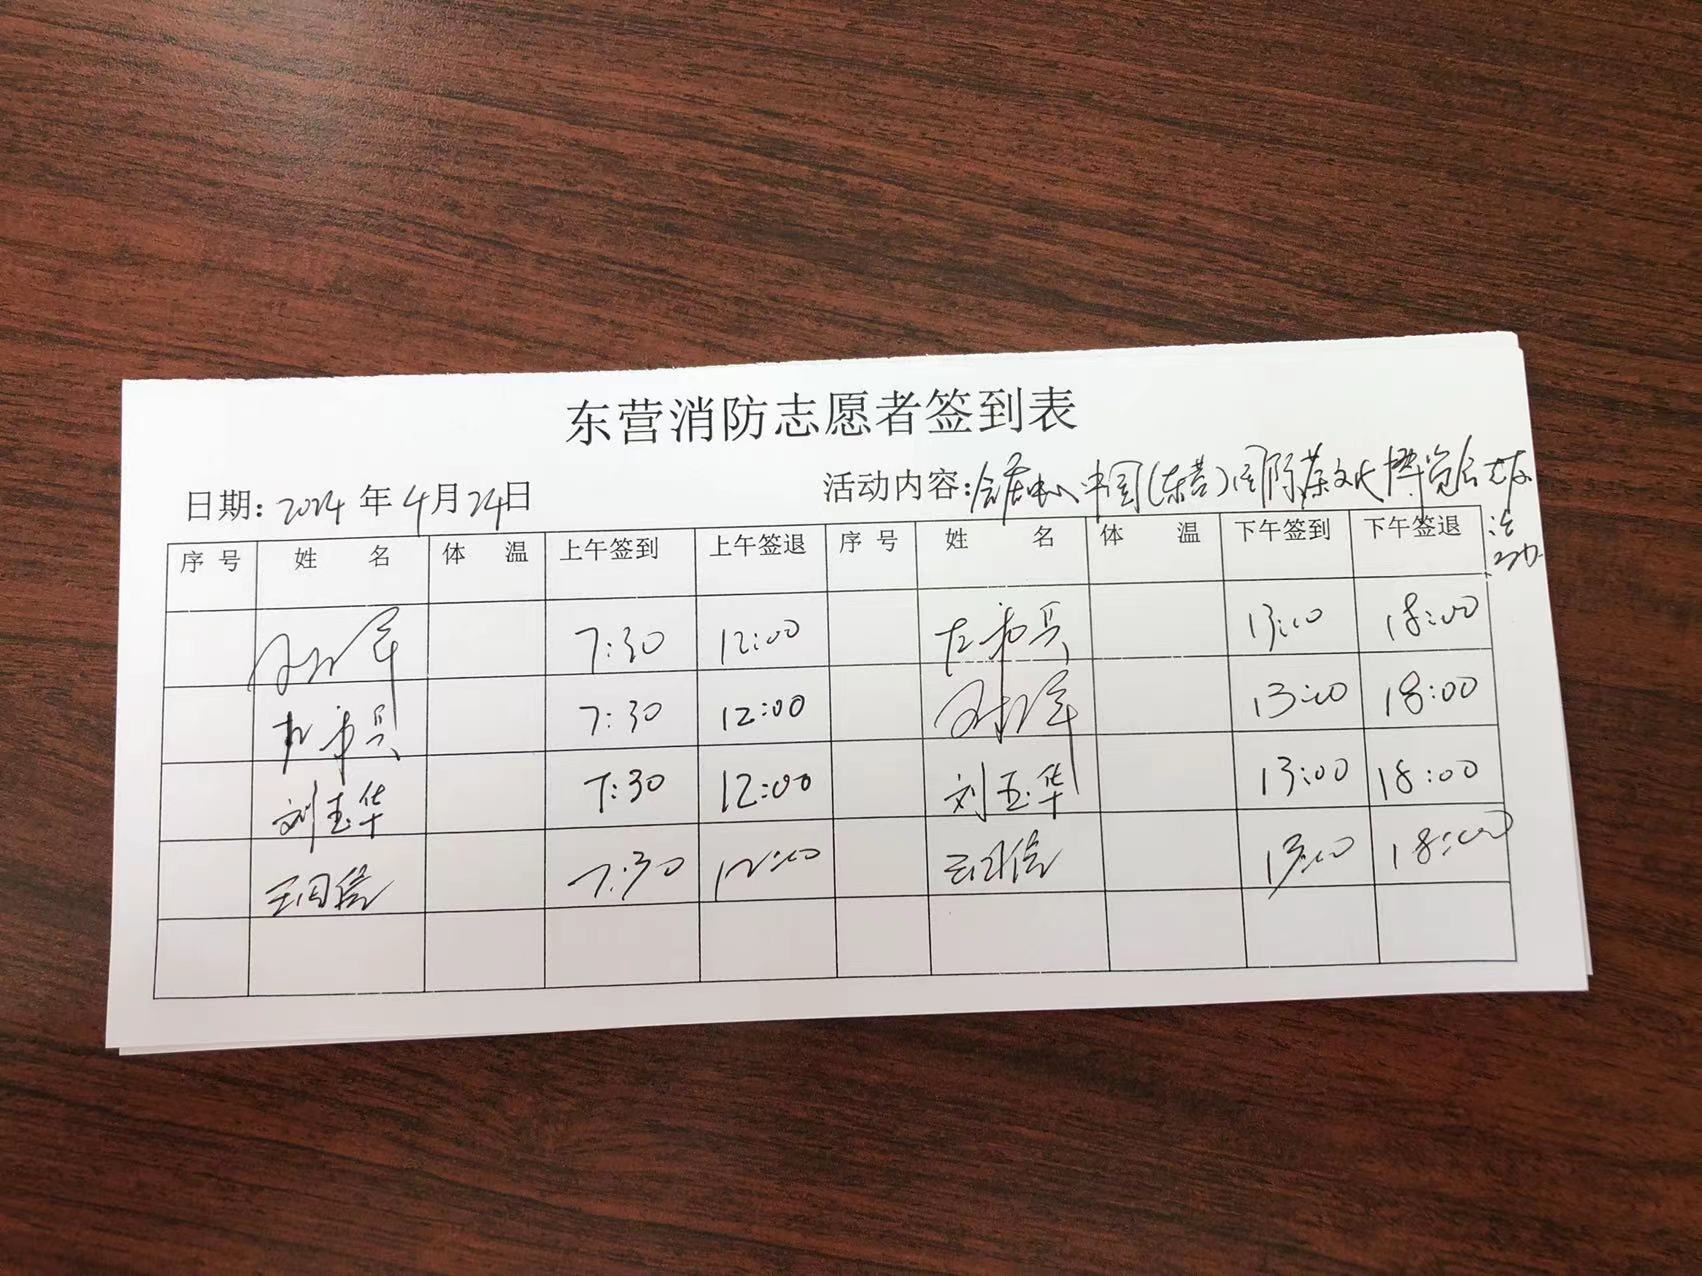 东营消防志愿者签到表
日期: 2024 年 4 月 24 日 活动内容: 会展中心 中国(东营)国际茶文化博览会
活动
序号 姓 名 体 温 上午签到 上午签退 序号 姓 名 体 温 下午签到 下午签退
7:30 12:00 13:00 18:00
7:30 12:00 13:00 18:00
刘玉华 7:30 12:00 刘玉华 13:00 18:00
7:30 12:00 13:00 18:00